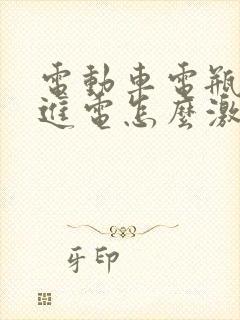 電動車電瓶
進電怎麼激
牙印